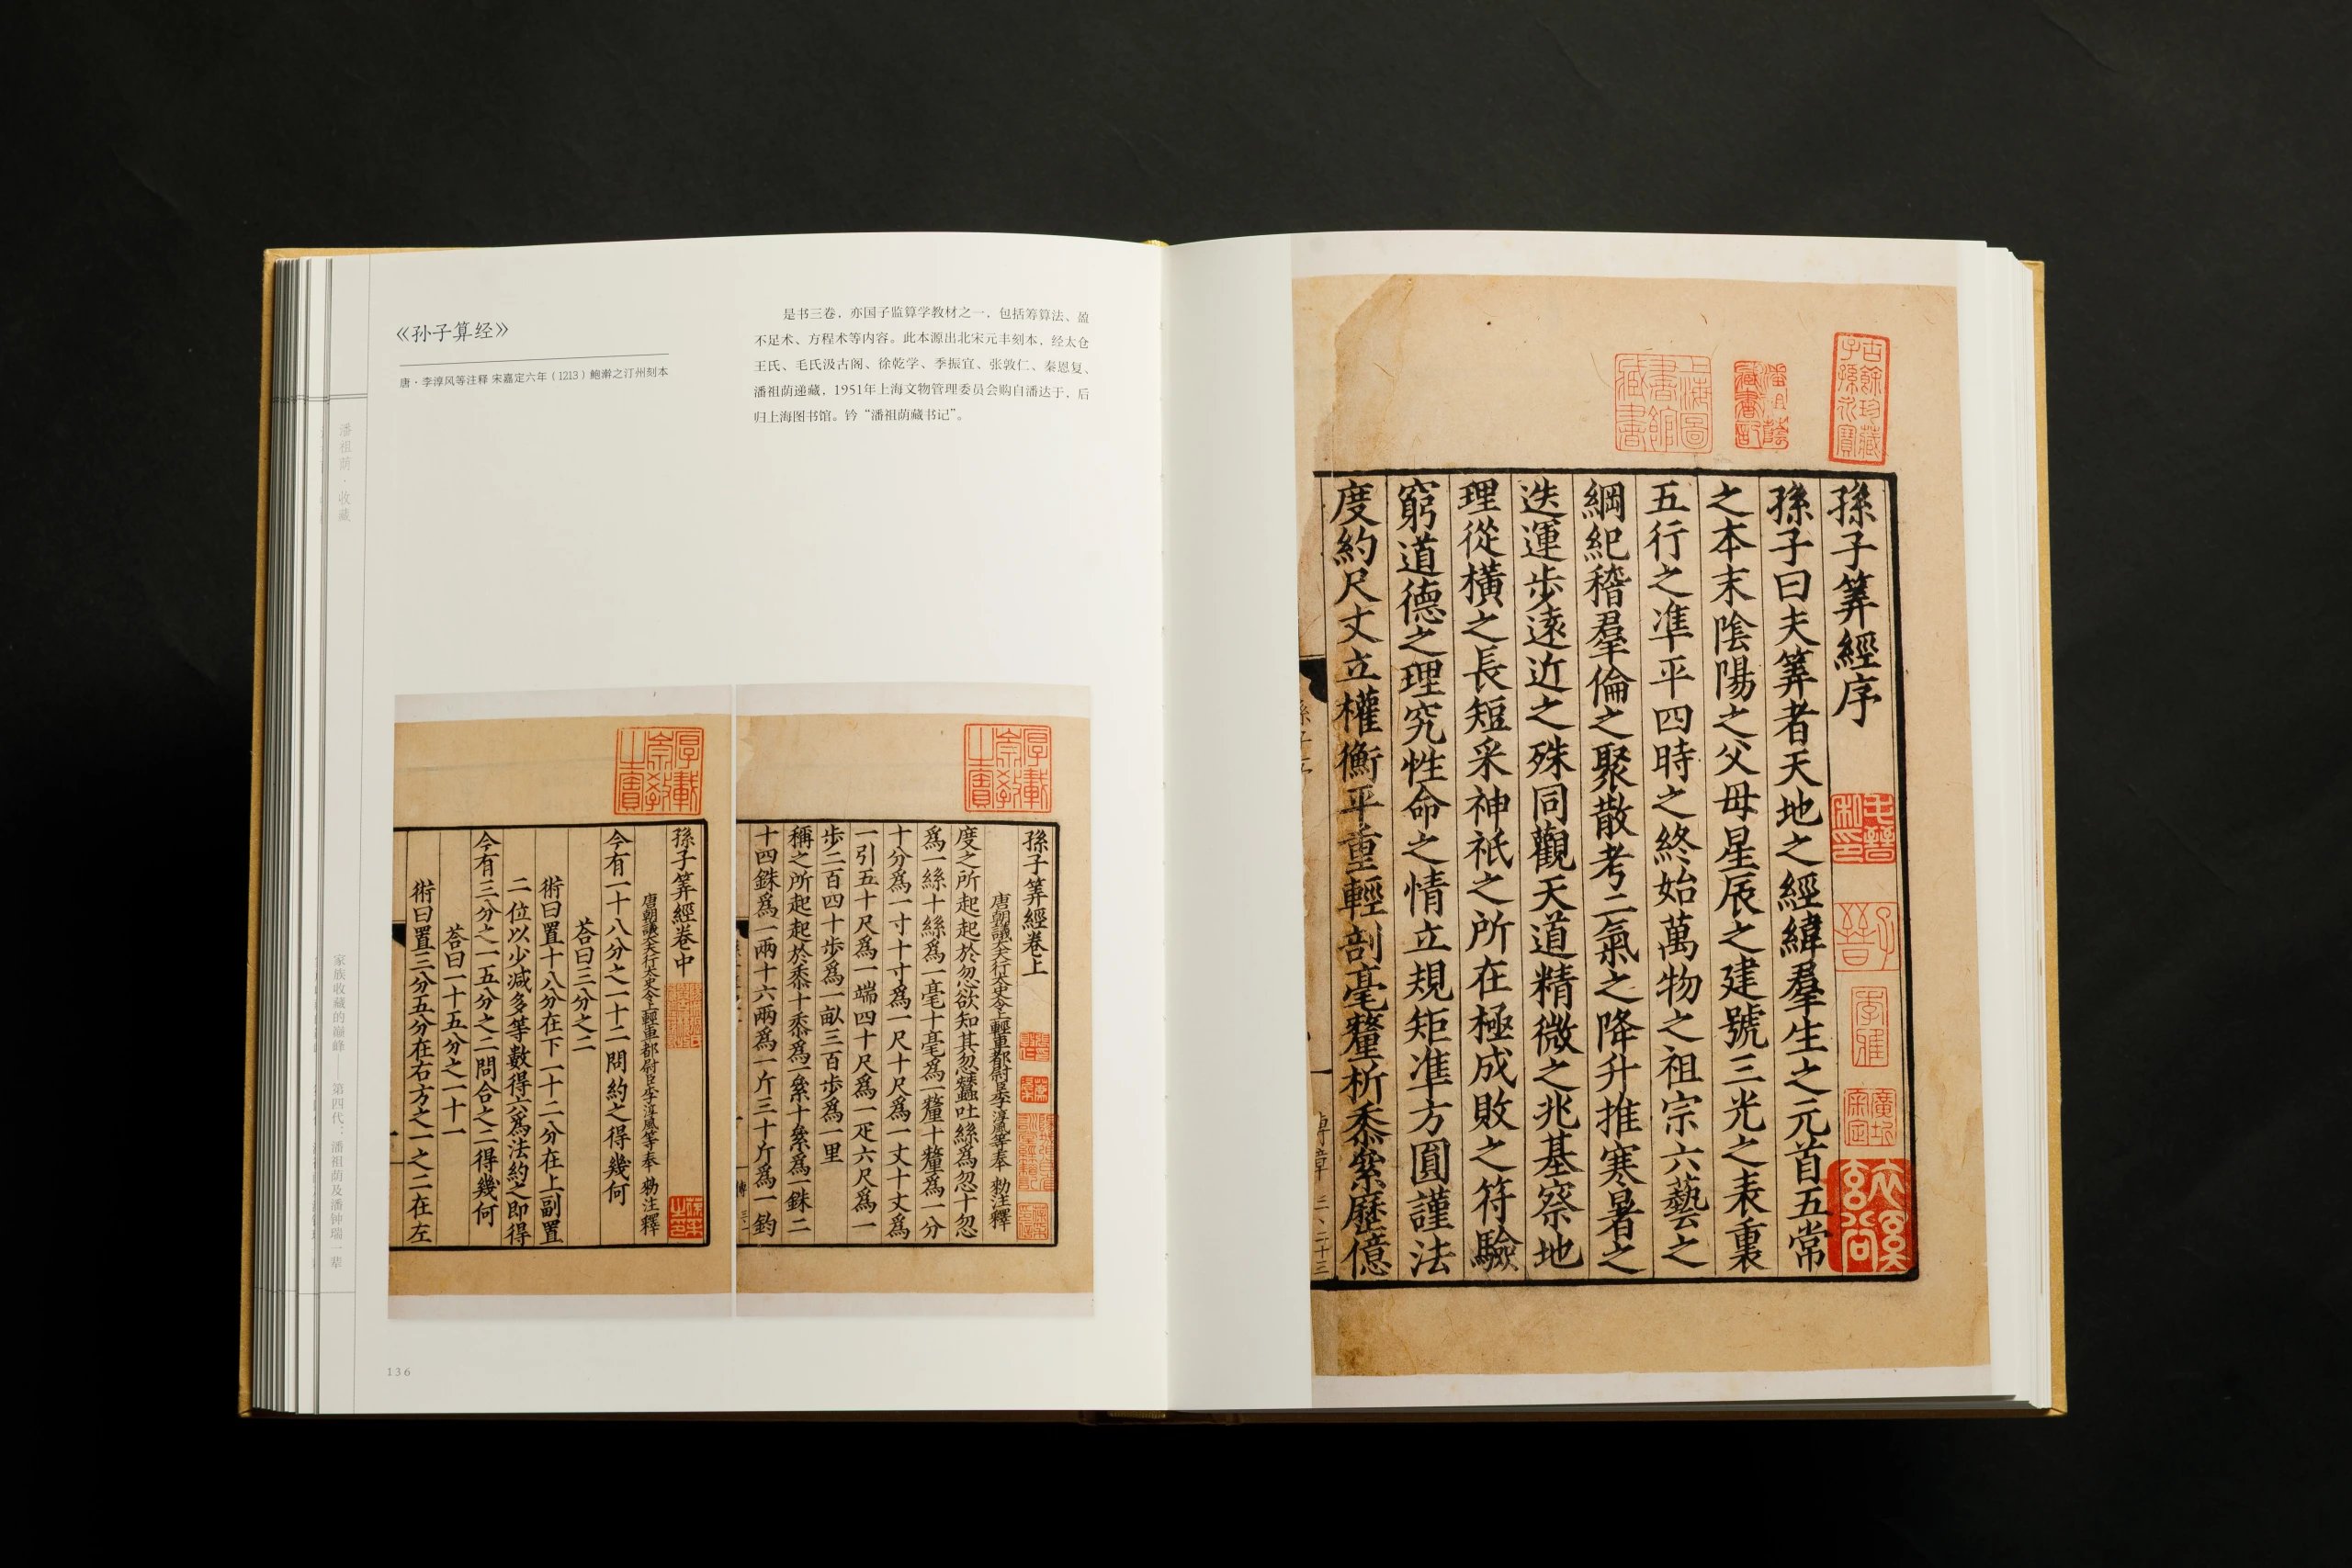 《孙子算经》
唐·李淳风等注释 宋嘉定六年（1213）鲍澣之汀州刻本
是书三卷，亦国子监算学教材之一，包括筹算法、盈
不足术、方程术等内容。此本源出北宋元丰刻本，经太仓
王氏、毛氏汲古阁、徐乾学、季振宜、张敦仁、秦恩复、
潘祖荫递藏，1951年上海文物管理委员会购自潘达于，后
归上海图书馆。钤“潘祖荫藏书记”。
潘祖荫·收藏
家族收藏的巅峰——第四代：潘祖荫及潘钟瑞一辈
厚載
崇教
之寶
孫子筭經卷上
唐朝議大夫行太史令上輕車都尉臣李淳風等奉 勑注釋
度之所起起於忽欲知其忽蠶吐絲爲忽十忽
爲一絲十絲爲一毫十毫爲一釐十釐爲一分
十分爲一寸十寸爲一尺十尺爲一丈十丈爲
一引五十尺爲一端四十尺爲一疋六尺爲一
步二百四十步爲一畝三百步爲一里
稱之所起起於黍十黍爲一絫十絫爲一銖二
十四銖爲一兩十六兩爲一斤三十斤爲一鈞
厚載
崇教
之寶
孫子筭經卷中
唐朝議大夫行太史令上輕車都尉臣李淳風等奉 勑注釋
今有一十八分之一十二問約之得幾何
荅曰三分之二
術曰置十八分在下一十二分在上副置
二位以少减多等數得六爲法約之即得
今有三分之一五分之二問合之二得幾何
荅曰一十五分之一十一
術曰置三分五分在右方之一之二在左
136
古餘珍藏
子孫永寶
潘祖蔭
藏書記
上海圖
書館
藏書
孫子筭經序
毛晉
私印
孫子曰夫筭者天地之經緯羣生之元首五常
之本末陰陽之父母星辰之建號三光之表裏
五行之準平四時之終始萬物之祖宗六藝之
綱紀稽羣倫之聚散考二氣之降升推寒暑之
迭運步遠近之殊同觀天道精微之兆基察地
理從橫之長短采神祇之所在極成敗之符驗
窮道德之理究性命之情立規矩準方圓謹法
度約尺丈立權衡平重輕剖毫釐析黍絫歷億